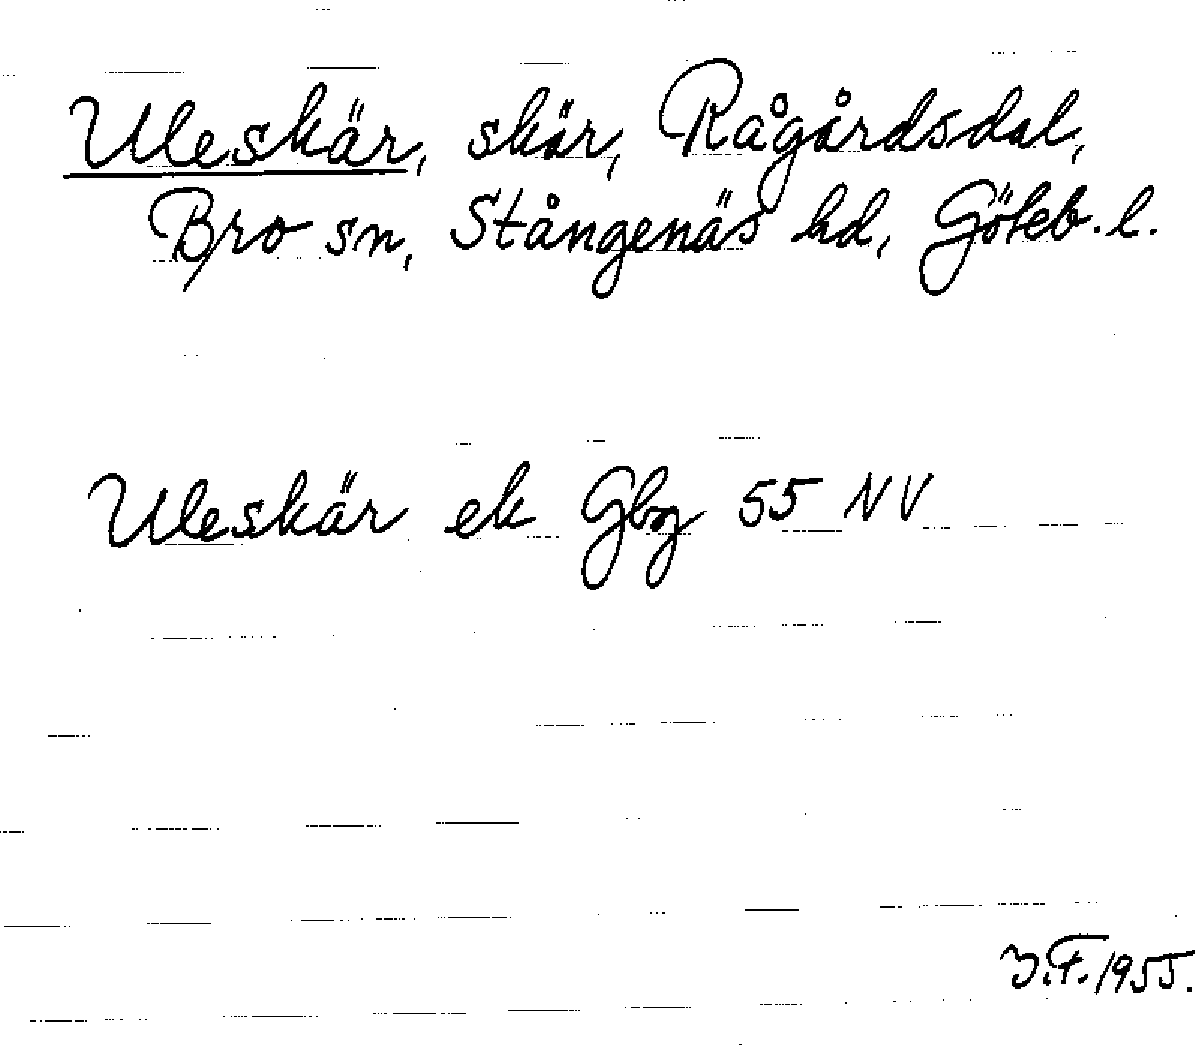 Uleskär, skär, Rågårdsdal,
Bro sn, Stångenäs hd, Göteb. l.
Uleskär ek Gbg 55 NV
J.F. 1955.